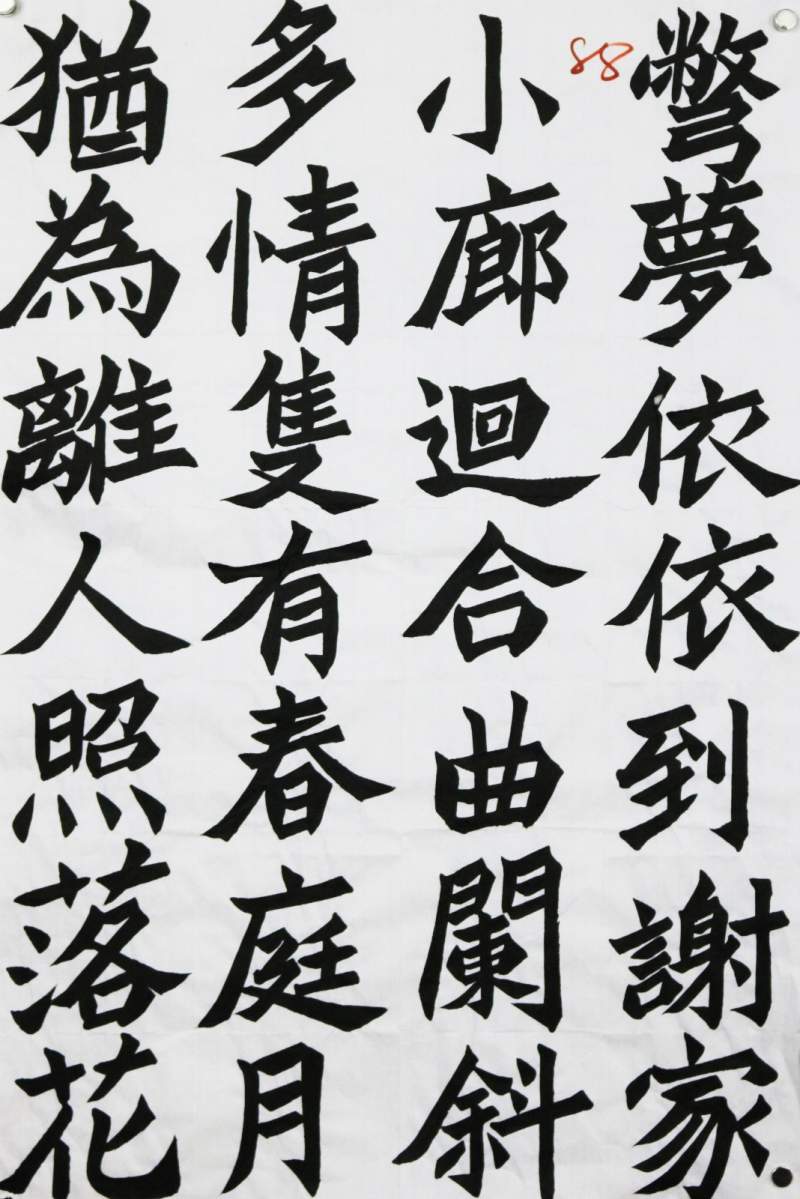 彆夢依依到謝家
88
小廊迴合曲闌斜
多情隻有春庭月
猶為離人照落花